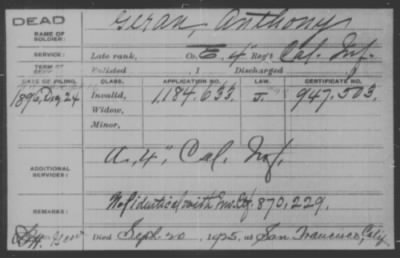 DEAD
NAME OF SOLDIER: Geran, Anthony
SERVICE: Late rank, Co. E, 4" Reg't Cal. Inf.
TERM OF SERV. Enlisted 1 Discharged 1
DATE OF FILING. CLASS. APPLICATION NO. LAW. CERTIFICATE NO.
1896, Dec 24 Invalid, 1,184,633. J. 947,503.
Widow,
Minor,
ADDITIONAL SERVICES: A. 4", Cal. Inf.
REMARKS: Not identical with Inv. Ctf. 870,229.
Died Sept 20, 1925, at San Francisco, Calif